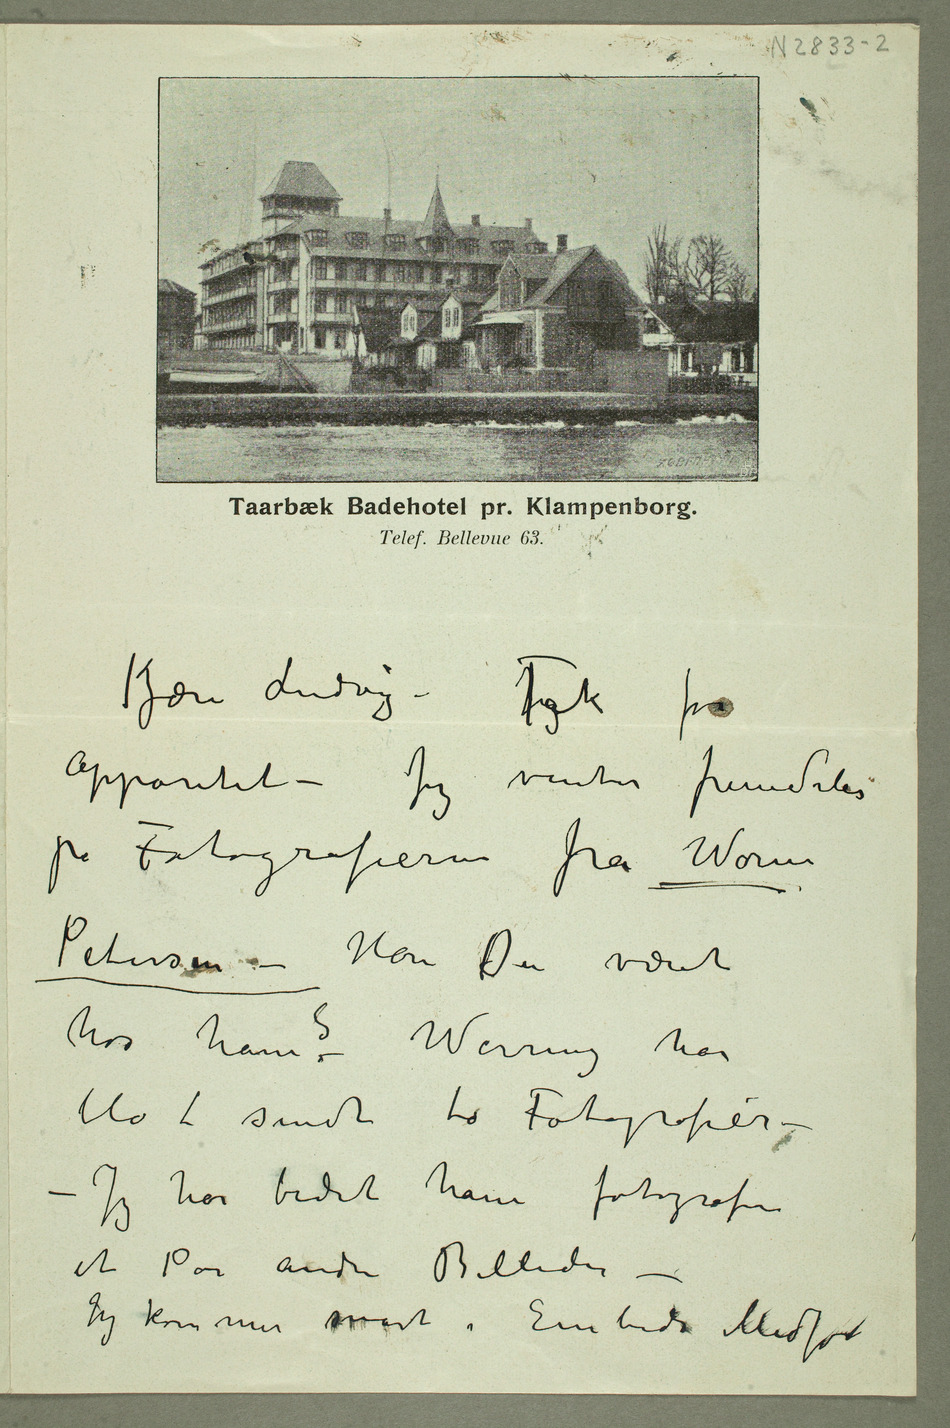 N 2833-2
Taarbæk Badehotel pr. Klampenborg.
Telef. Bellevue 63.
Kjære Ludvig – Tak for
Apparatet – Jeg venter fremdeles
på Fotografierne fra Worm
Petersen – Har Du været
hos ham? – Wærning har
blot sendt to Fotografiér –
– Jeg har bedet ham fotografere
et Par andre Billeder –
Jeg kommer snart i Embeds Medfør